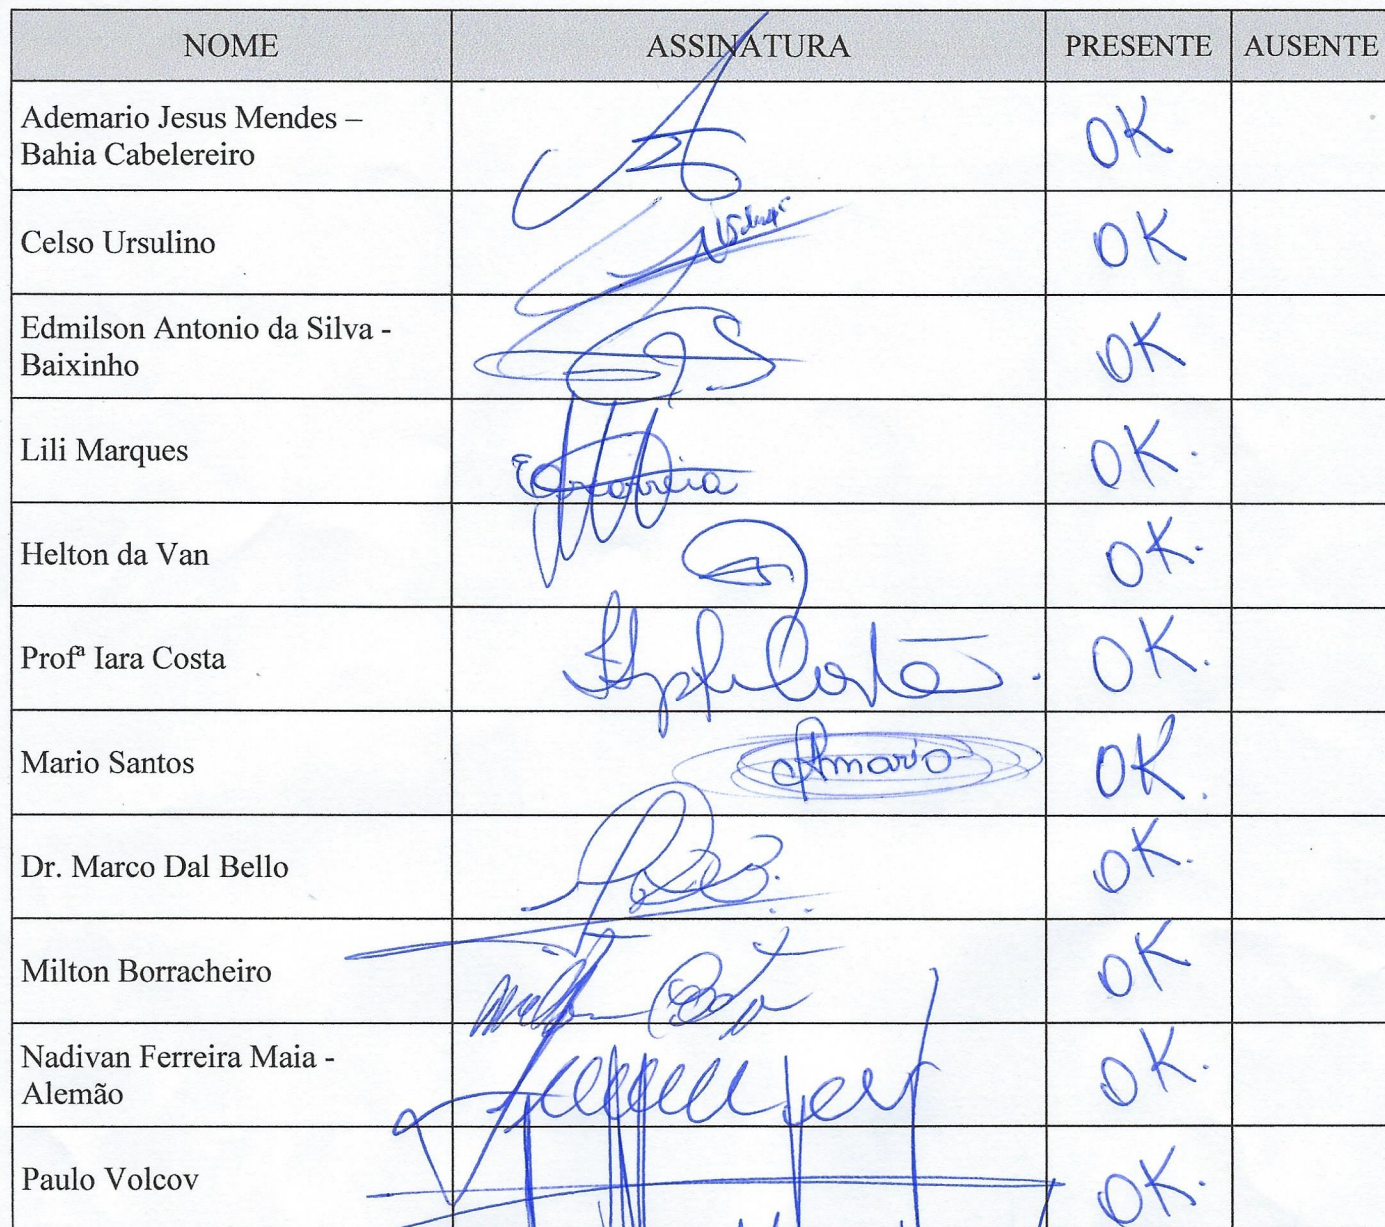 NOME ASSINATURA PRESENTE AUSENTE
Ademario Jesus Mendes –
Bahia Cabelereiro
OK
Celso Ursulino
OK
Edmilson Antonio da Silva -
Baixinho
OK
Lili Marques
OK.
Helton da Van
OK.
Profª Iara Costa
Costa
OK.
Mario Santos
OK.
Dr. Marco Dal Bello
OK.
Milton Borracheiro
OK
Nadivan Ferreira Maia -
Alemão
OK.
Paulo Volcov
OK.